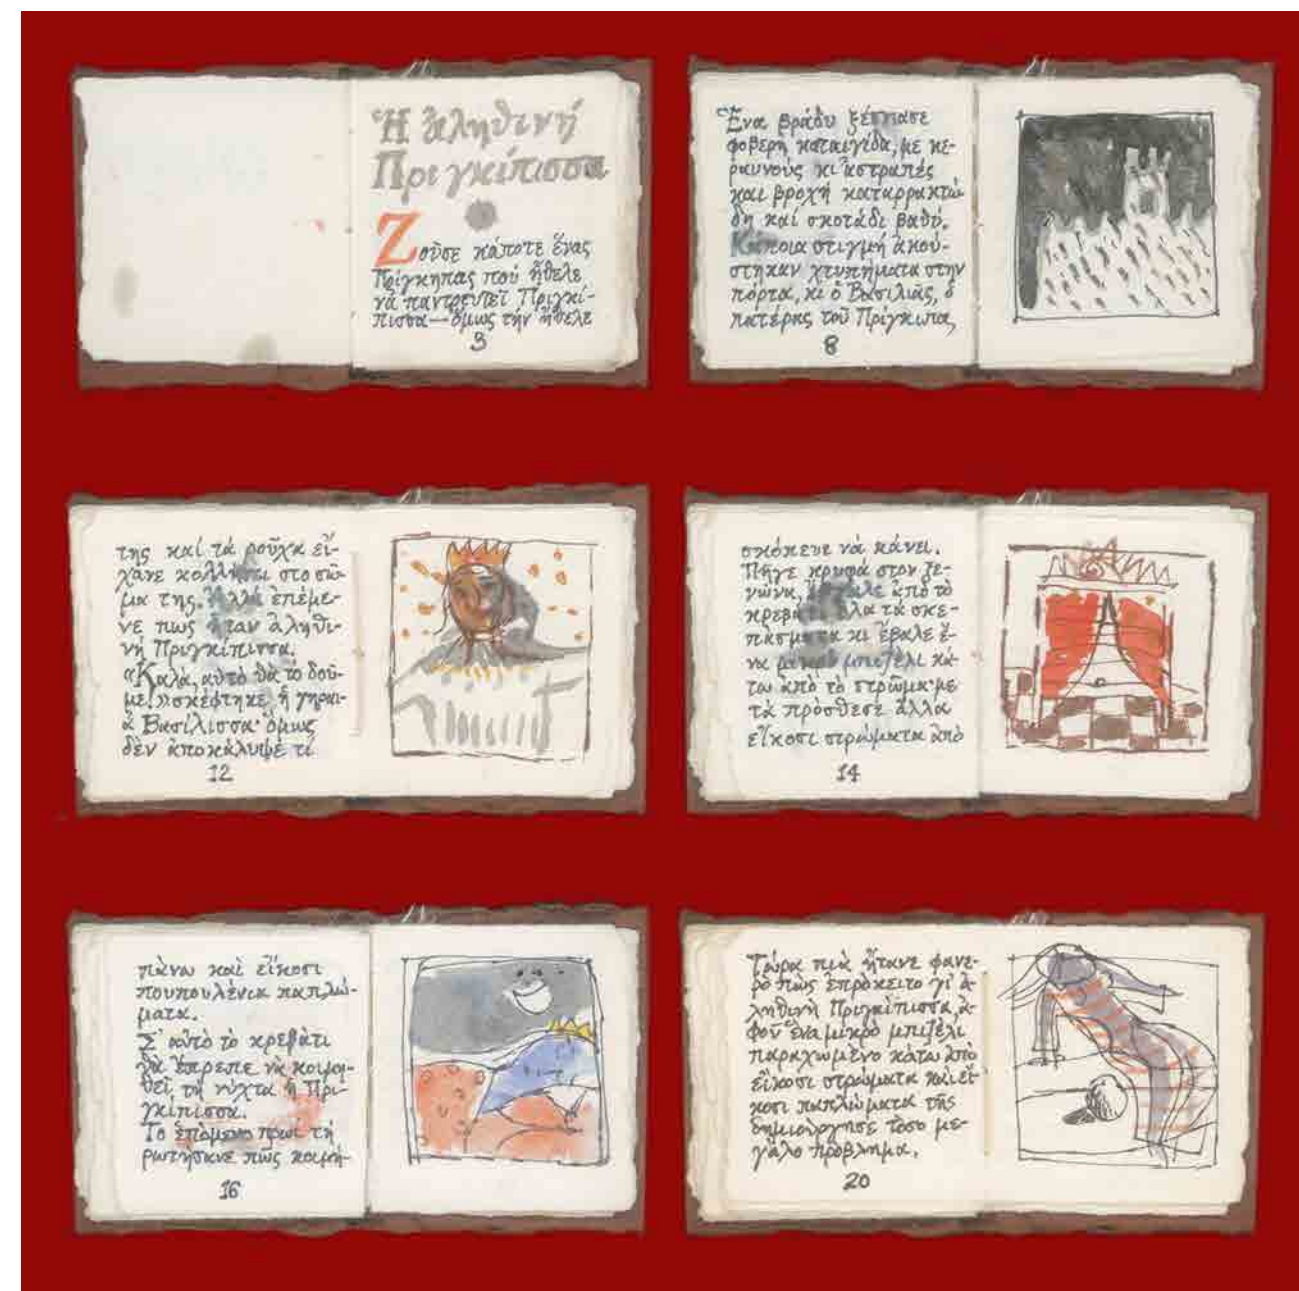 Ἡ ἀληθινή
Πριγκίπισσα
Ζοῦσε κάποτε ἕνας
Πρίγκηπας πού ἤθελε
νά παντρευτεῖ Πριγκί-
πισσα—ὅμως τήν ἤθελε
3
Ἕνα βράδυ ξέσπασε
φοβερή καταιγίδα, με κε-
ραυνούς κι ἀστραπές
και βροχή καταρρακτώ
δη καί σκοτάδι βαθύ.
Κάποια στιγμή ἀκού-
στηκαν χτυπήματα στην
πόρτα, κι ὁ Βασιλιᾶς, ὁ
πατέρας τοῦ Πρίγκιπα,
8
της καί τά ροῦχα εἴ-
χανε κολλήσει στο σῶ-
μα της. Ἀλλά ἐπέμε-
νε πως ἦταν ἀληθι-
νή Πριγκίπισσα.
“Καλά, αὐτό θά το δοῦ-
με!» σκέφτηκε ἡ γηραι-
ά Βασίλισσα· ὅμως
δέν ἀποκάλυψε τί
12
σκόπευε νά κάνει.
Πῆγε κρυφά στον ξε-
νώνα, ἔβγαλε ἀπό τὸ
κρεβάτι ὅλα τά σκε-
πάσματα κι ἔβαλε ἕ-
να μικρό μπιζέλι κά-
τω ἀπὸ τὸ στρῶμα· με
τά πρόσθεσε ἄλλα
εἴκοσι στρώματα ἀπὸ
14
πάνω καὶ εἴκοσι
πουπουλένια παπλώ-
ματα.
Σ' αὐτὸ τὸ κρεβάτι
θὰ ἔπρεπε νὰ κοιμη-
θεῖ τη νύχτα ἡ Πρι-
γκίπισσα.
Το ἑπόμενο πρωί τή
ρωτήσανε πῶς κοιμή-
16
Τώρα πιὰ ἤτανε φανε-
ρὸ πως ἐπρόκειτο γι' ἀ-
ληθινή Πριγκίπισσα, ἀ-
φοῦ ἕνα μικρὸ μπιζέλι
παραχωμένο κάτω ἀπὸ
εἴκοσι στρώματα και εἴ-
κοσι παπλώματα τῆς
δημιούργησε τόσο με-
γάλο πρόβλημα.
20